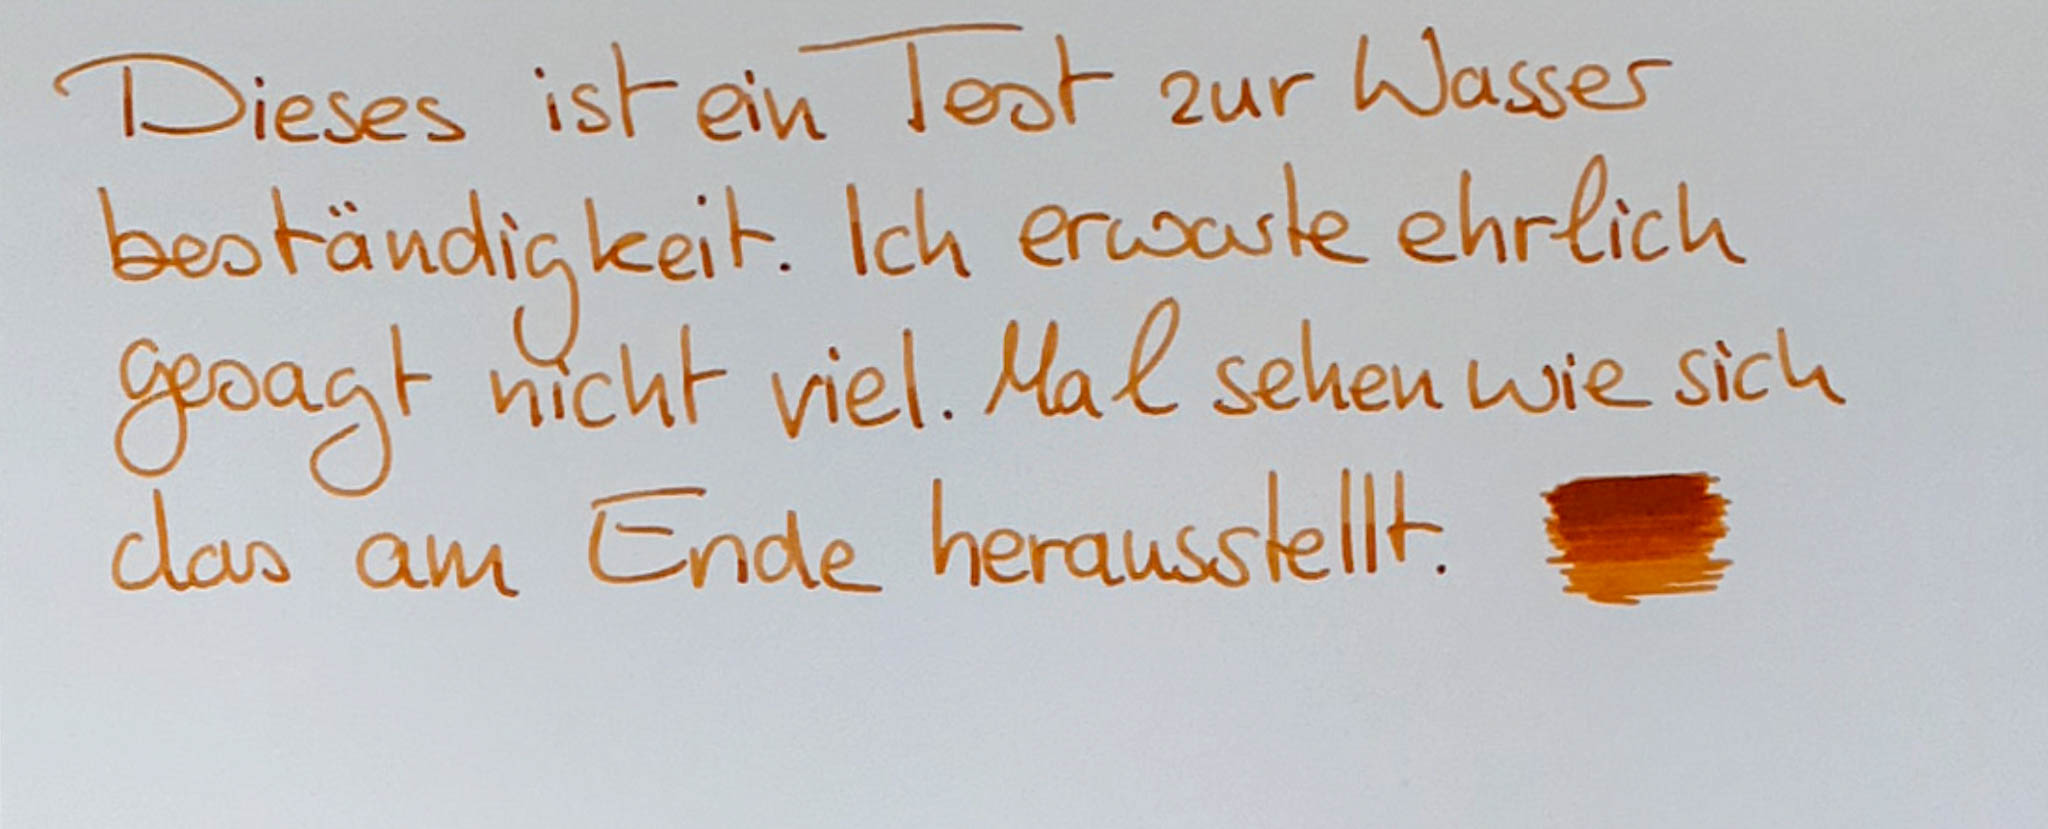 Dieses ist ein Test zur Wasser
beständigkeit. Ich erwarte ehrlich
gesagt nicht viel. Mal sehen wie sich
das am Ende herausstellt.